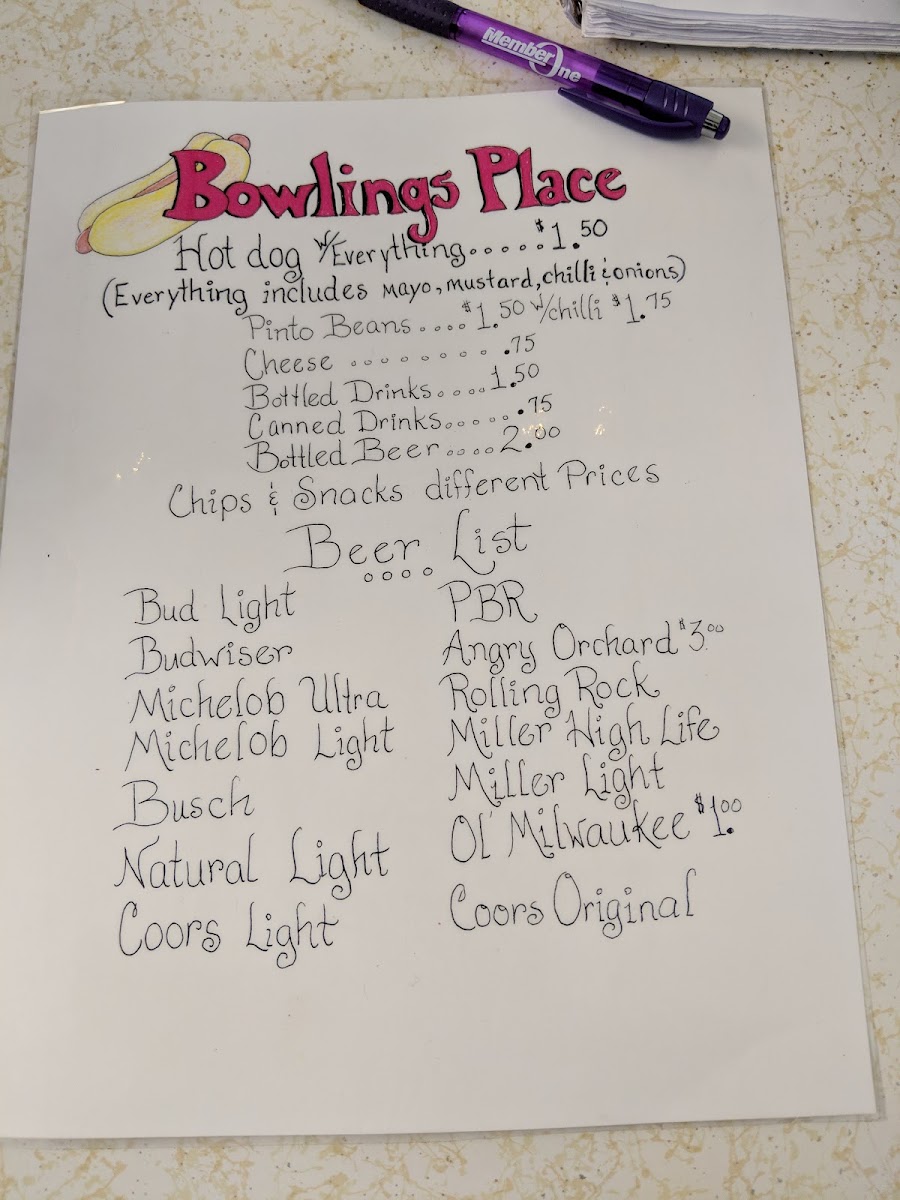 MemberOne
Bowlings Place
Hot dog w/Everything.....$1.50
(Everything includes mayo, mustard, chilli & onions)
Pinto Beans....$1.50 w/chilli $1.75
Cheese.........75
Bottled Drinks....1.50
Canned Drinks......75
Bottled Beer....2.00
Chips & Snacks different Prices
Beer List
....
Bud Light PBR
Budwiser Angry Orchard $3.00
Michelob Ultra Rolling Rock
Michelob Light Miller High Life
Busch Miller Light
Natural Light Ol' Milwaukee $1.00
Coors Light Coors Original